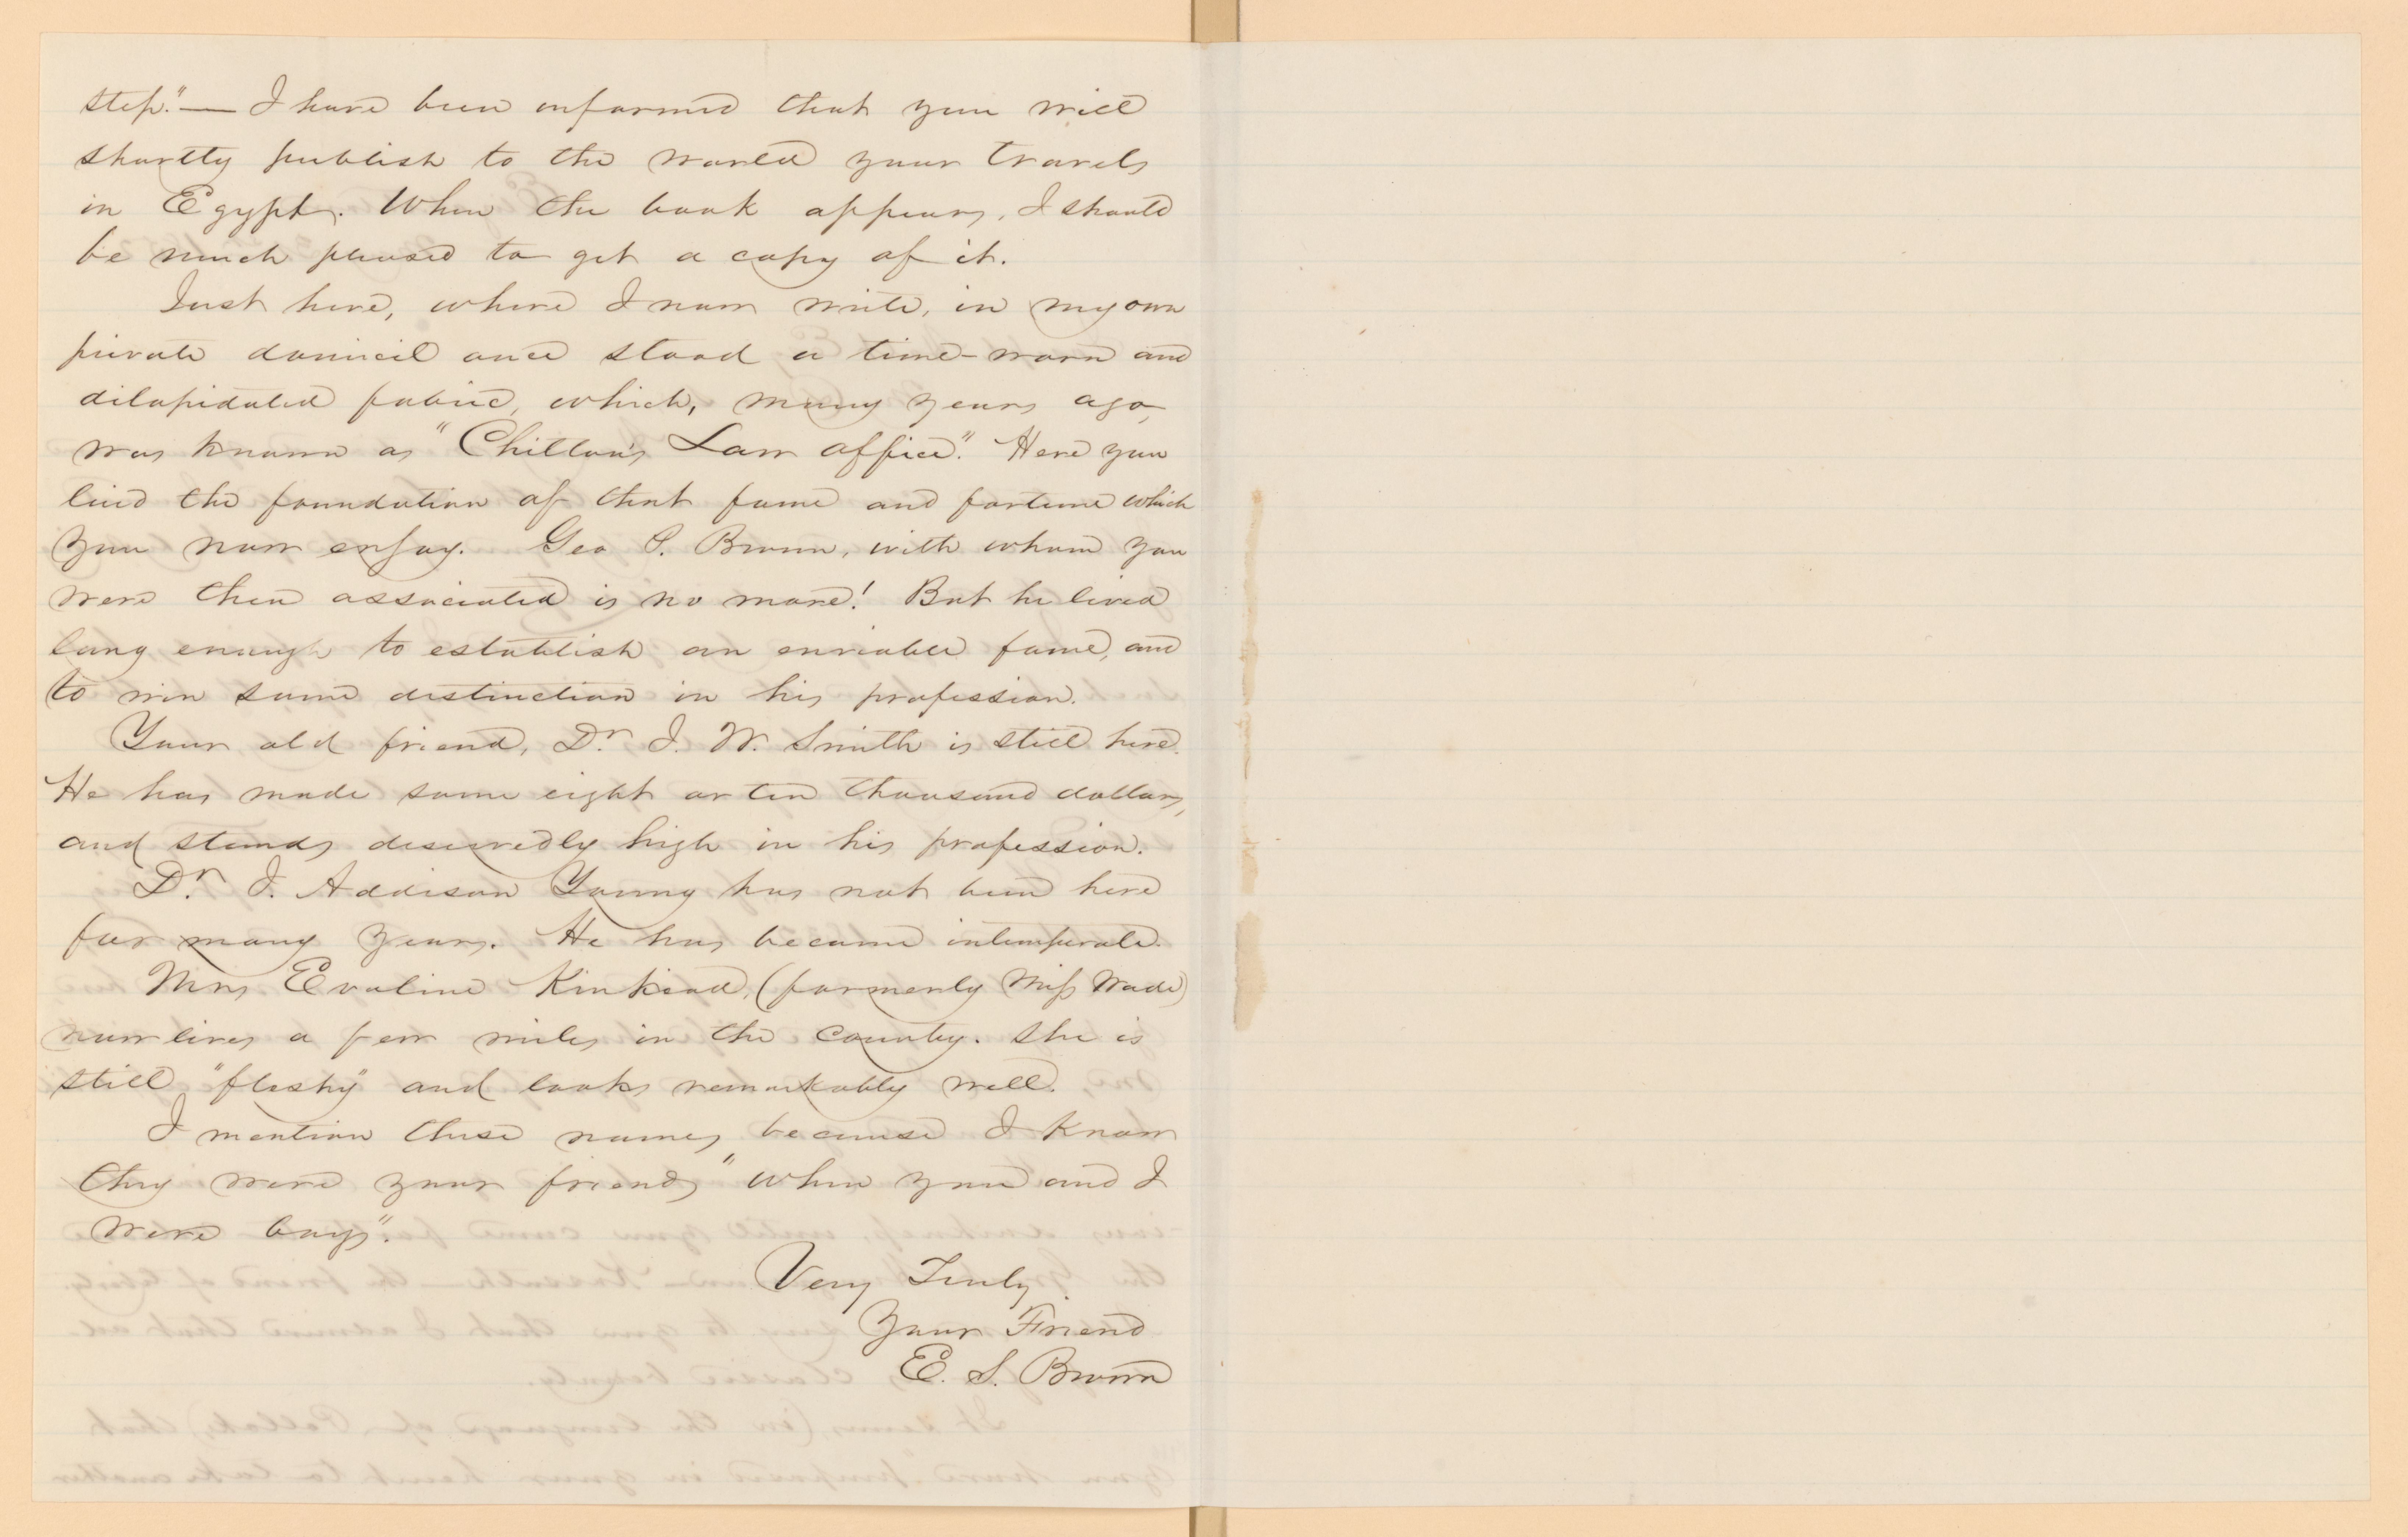 step."— I have been informed that you will
shortly publish to the world your travels
in Egypt. When the book appears, I should
be much pleased to get a copy of it.
Just here, where I now write, in my own
private domicil once stood a time-worn and
dilapidated fabric, which, many years ago,
was known as "Chilton's Law office." Here you
laid the foundation of that fame and fortune which
you now enjoy. Geo S. Brown, with whom you
were then associated is no more! But he lived
long enough to establish an enviable fame, and
to win some distinction in his profession.
Your old friend, Dr. J. W. Smith is still here.
He has made some eight or ten thousand dollars,
and stands deservedly high in his profession.
Dr. J. Addison Young has not been here
for many years. He has become intemperate.
Mrs Evaline Kinkead, (formerly Miss Wade)
now lives a few miles in the country. She is
still "fleshy" and looks remarkably well.
I mention these names because I know
they were your friends "when you and I
were boys".
Very Truly
Your Friend
E. S. Brown